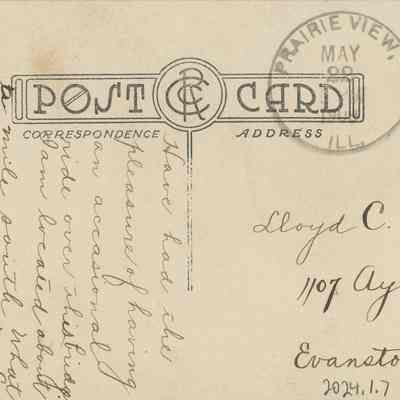 PRAIRIE VIEW,
MAY
22
ILL.
POST CARD
CORRESPONDENCE
ADDRESS
Have had the
pleasure of having
an accasonal
ride over this bridge
I am located about
mile south What
Lloyd C.
1107 Ay
Evansto
2024.1.7